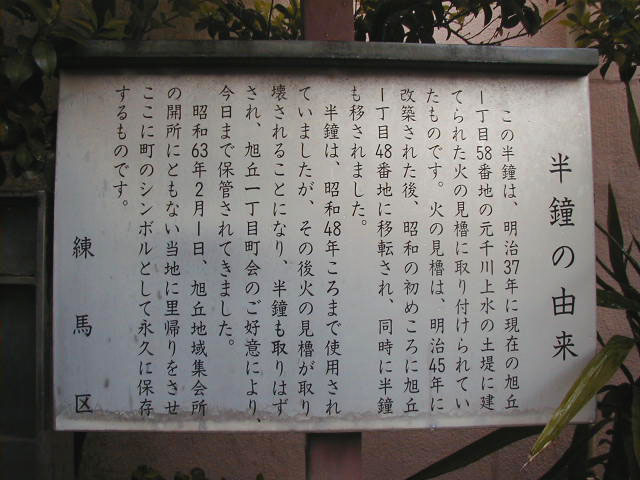 半鐘の由来
この半鐘は、明治37年に現在の旭丘
一丁目58番地の元千川上水の土堤に建
てられた火の見櫓に取り付けられてい
たものです。火の見櫓は、明治45年に
改築された後、昭和の初めころに旭丘
一丁目48番地に移転され、同時に半鐘
も移されました。
半鐘は、昭和48年ころまで使用され
ていましたが、その後火の見櫓が取り
壊されることになり、半鐘も取りはず
され、旭丘一丁目町会のご好意により、
今日まで保管されてきました。
昭和63年2月一日、旭丘地域集会所
の開所にともない当地に里帰りをさせ
ここに町のシンボルとして永久に保存
するものです。
練馬区